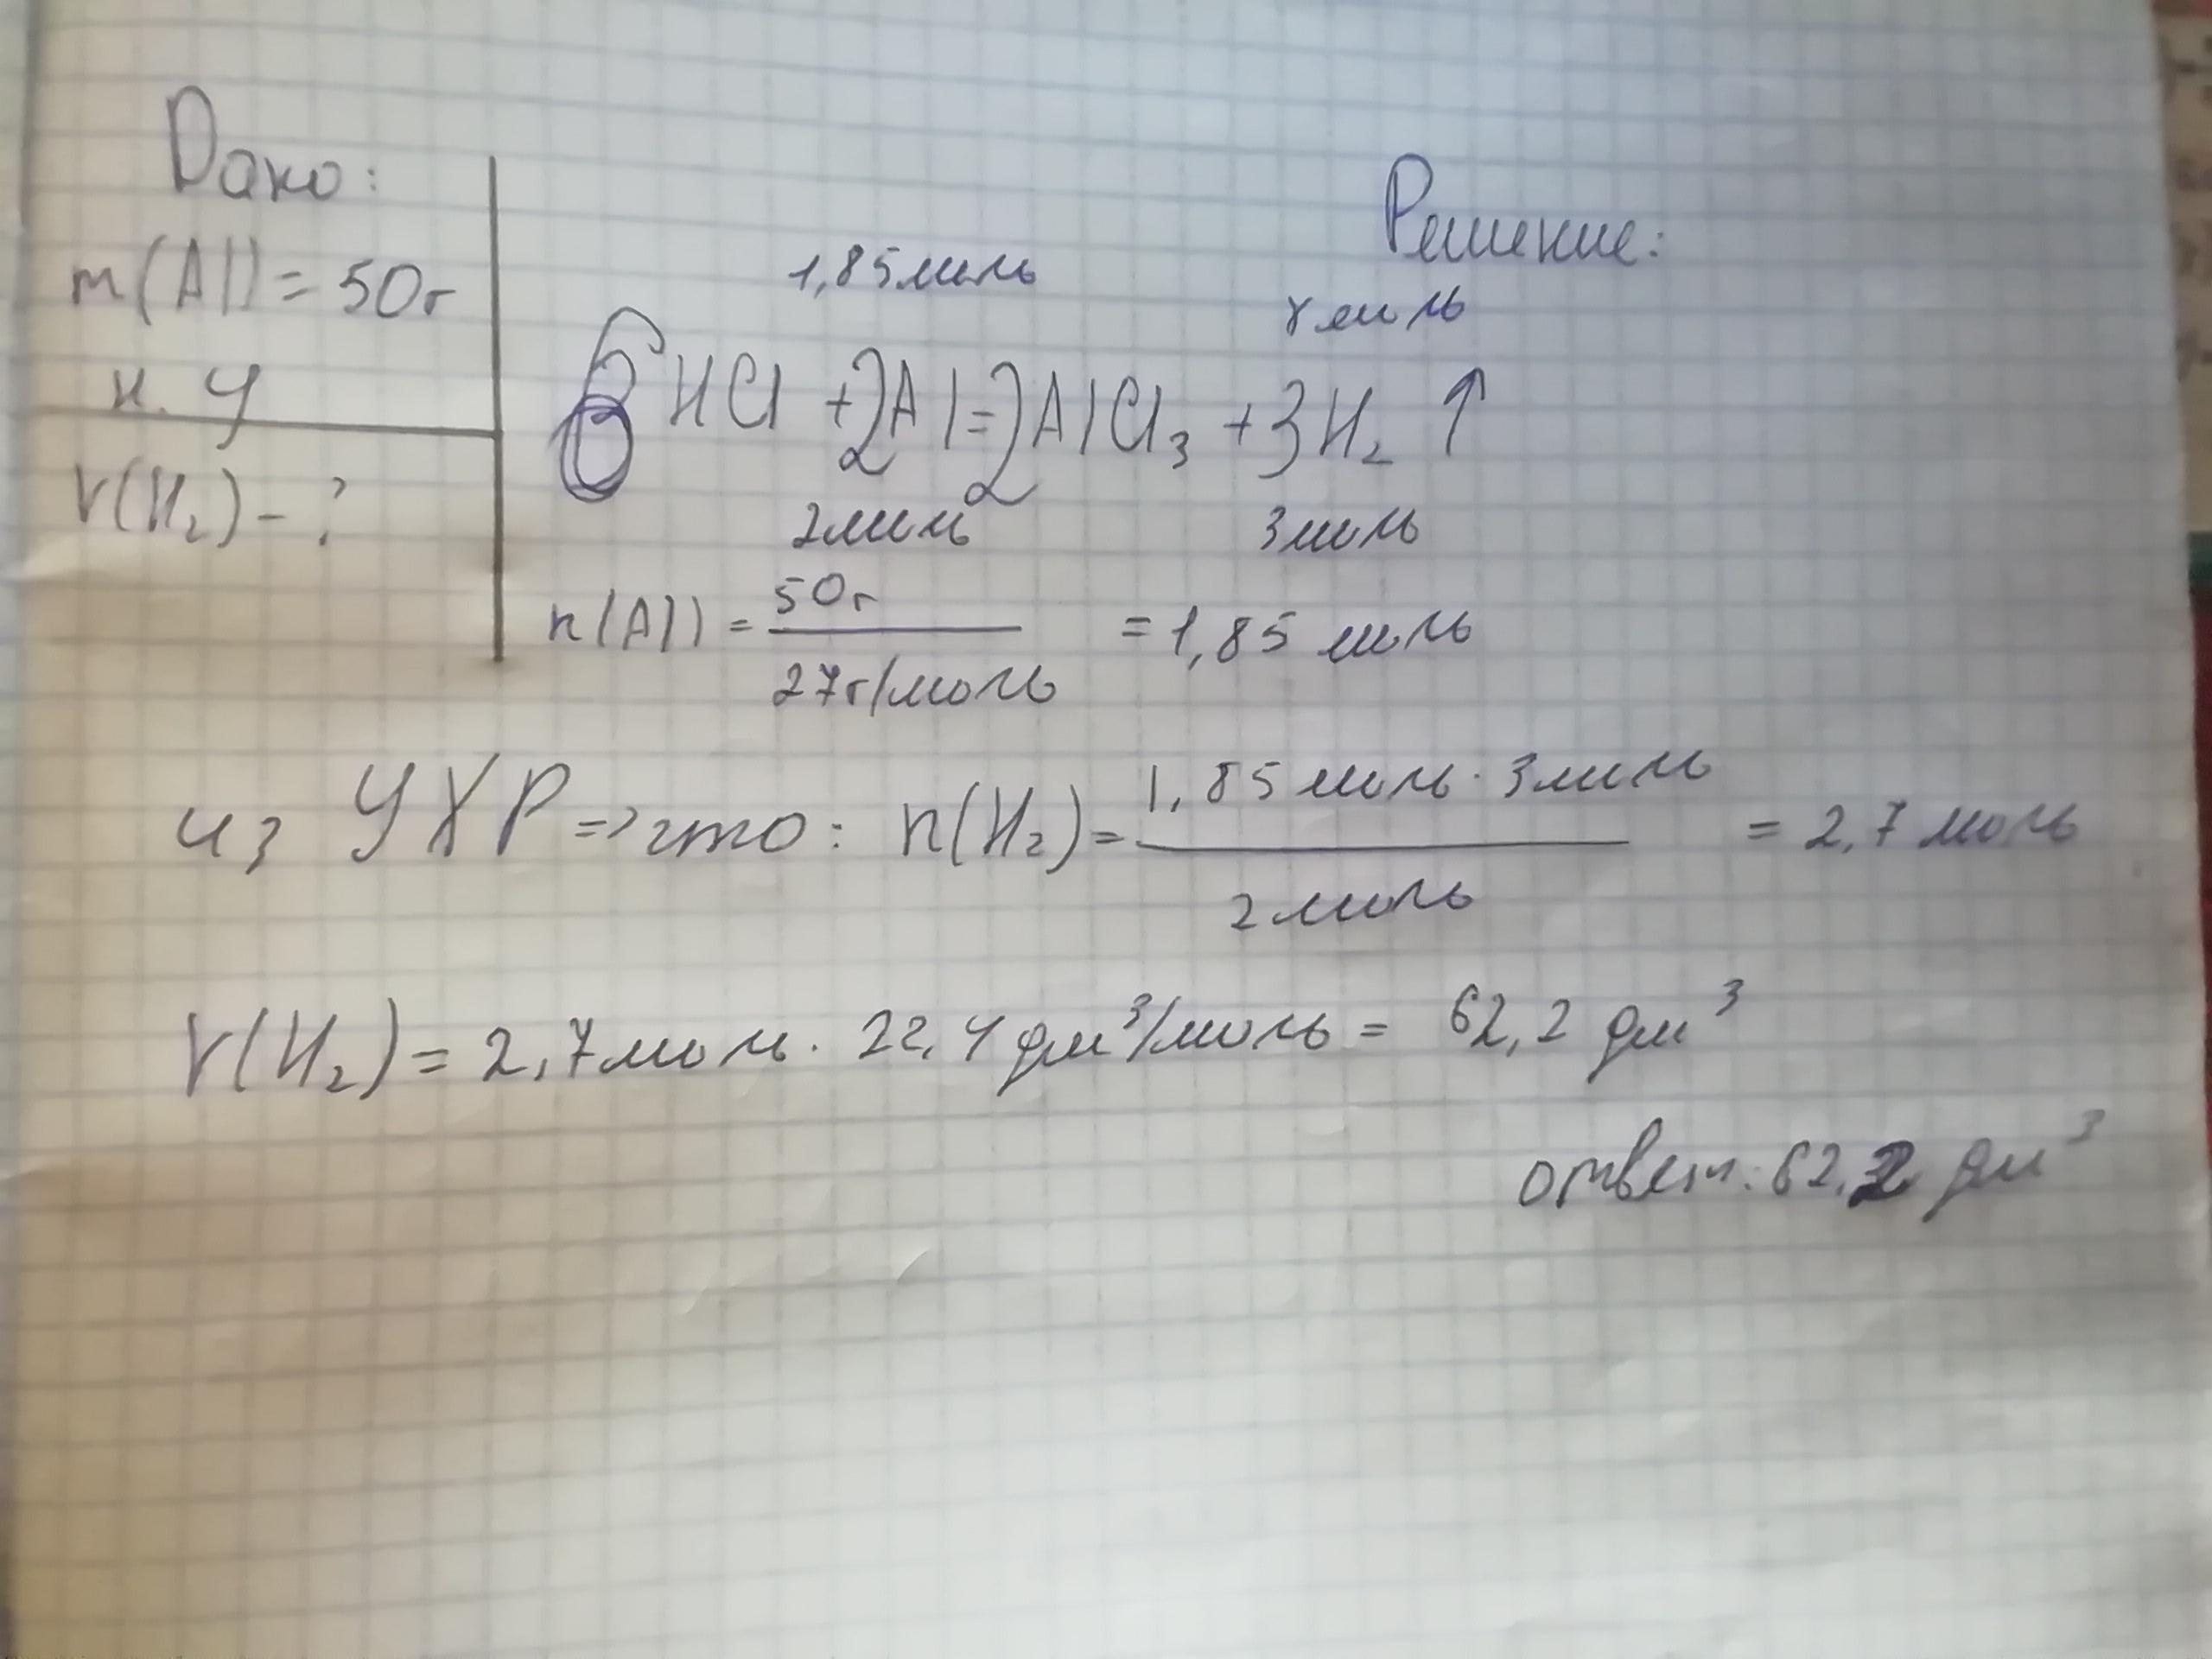 Дано:
m(Al) = 50г
н. у
V(H₂) - ?
Решение:
1,85 моль
x моль
6HCl + 2Al = 2AlCl₃ + 3H₂ ↑
2 моль
3 моль
n(Al) = 50г / 27г/моль = 1,85 моль
из УХР => что: n(H₂) = 1,85 моль · 3 моль / 2 моль = 2,7 моль
V(H₂) = 2,7 моль · 22,4 дм³/моль = 62,2 дм³
ответ: 62,2 дм³